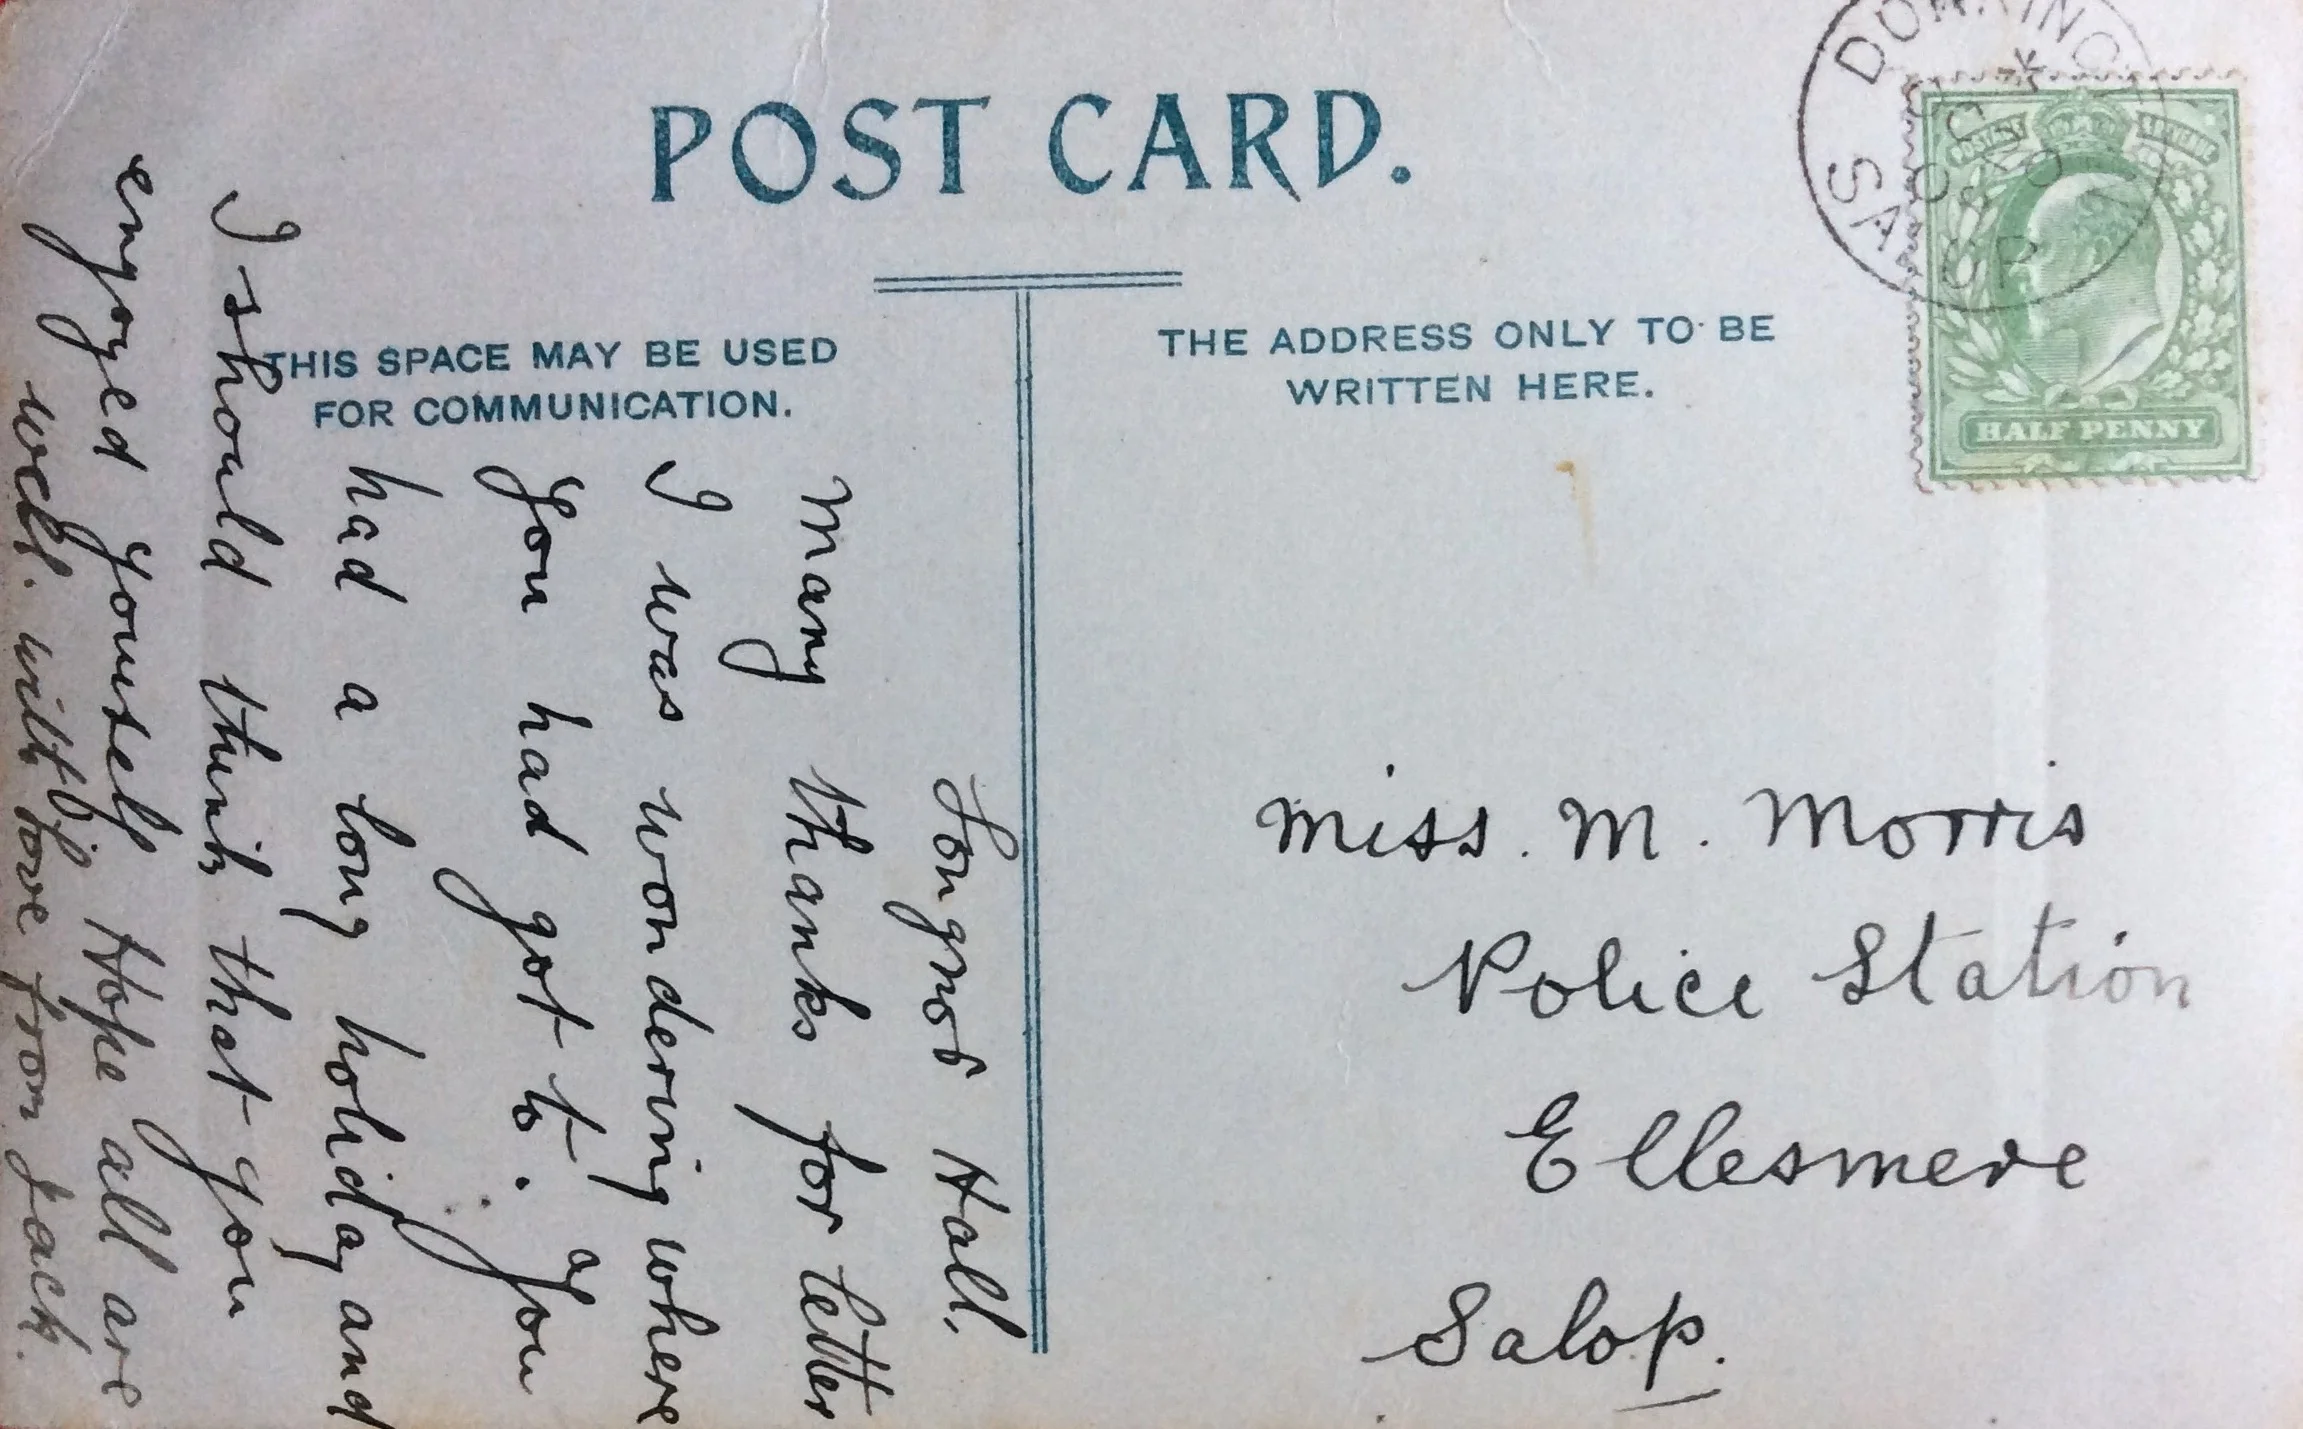 POST CARD.
THIS SPACE MAY BE USED
FOR COMMUNICATION.
THE ADDRESS ONLY TO BE
WRITTEN HERE.
HALF PENNY
Longnor Hall,
Many thanks for letter
I was wondering where
you had got to. you
had a long holiday and
I should think that you
enjoyed yourself Hope all are
well. with love from Jack.
Miss. M. Morris
Police Station
Ellesmere
Salop.